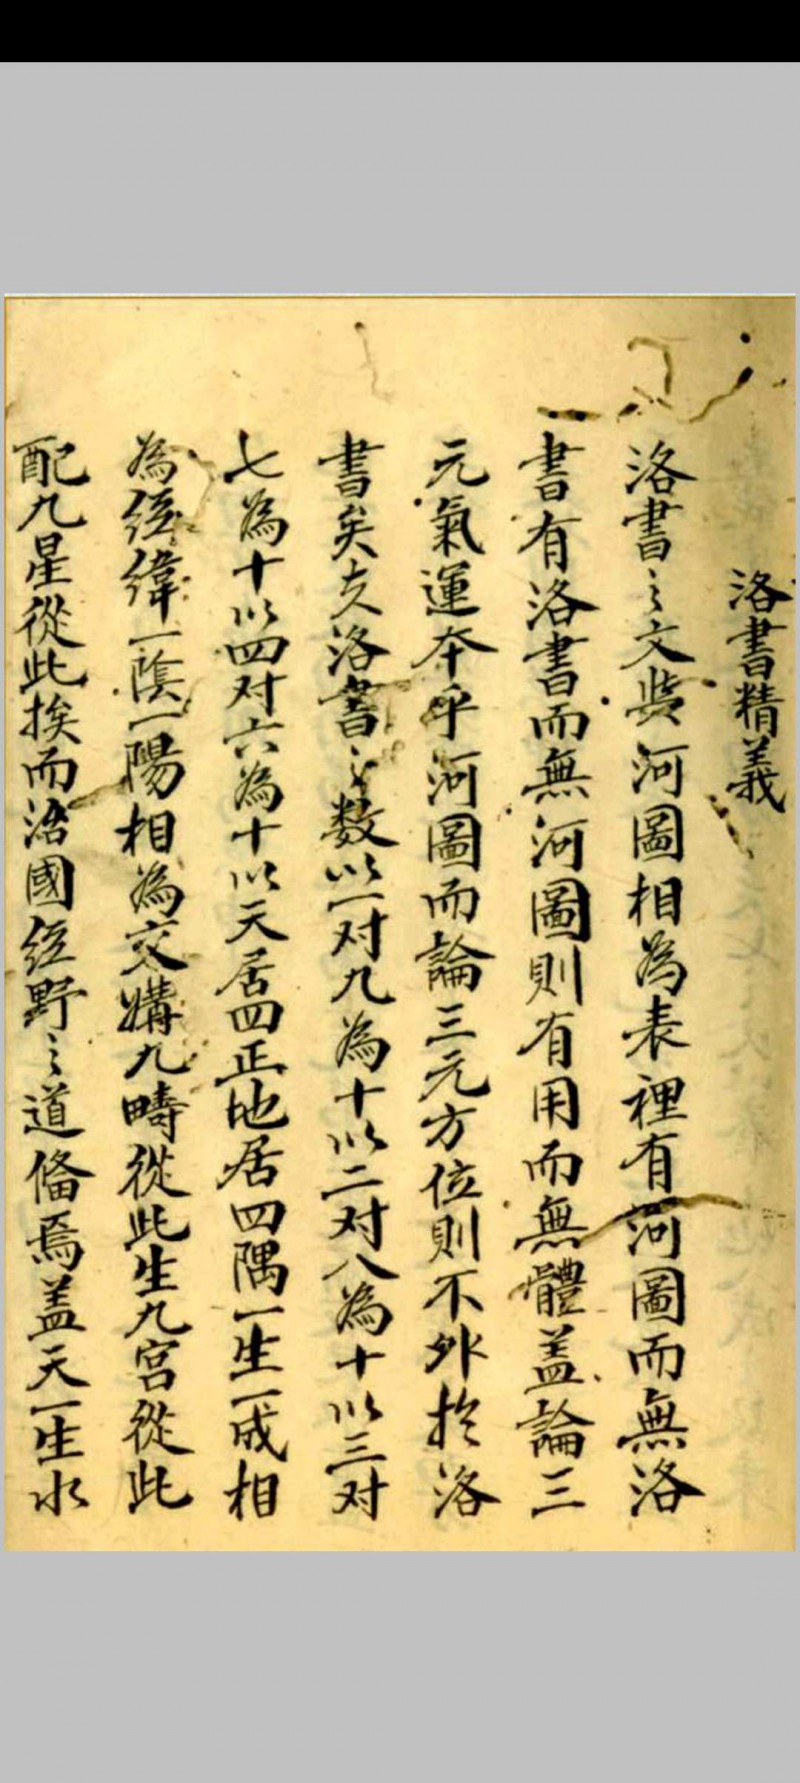 洛書精義
洛書之文與河圖相為表裡有河圖而無洛
書有洛書而無河圖則有用而無體盖論三
元氣運夲乎河圖而論三元方位則不外扵洛
書矣夫洛書之数以一对九為十以二对八為十以三对
七為十以四对六為十以天居四正地居四隅一生一成相
為经緯一陰一陽相為交媾九疇從此生九宮從此
配九星從此挨而治國经野之道俻焉盖天一生水